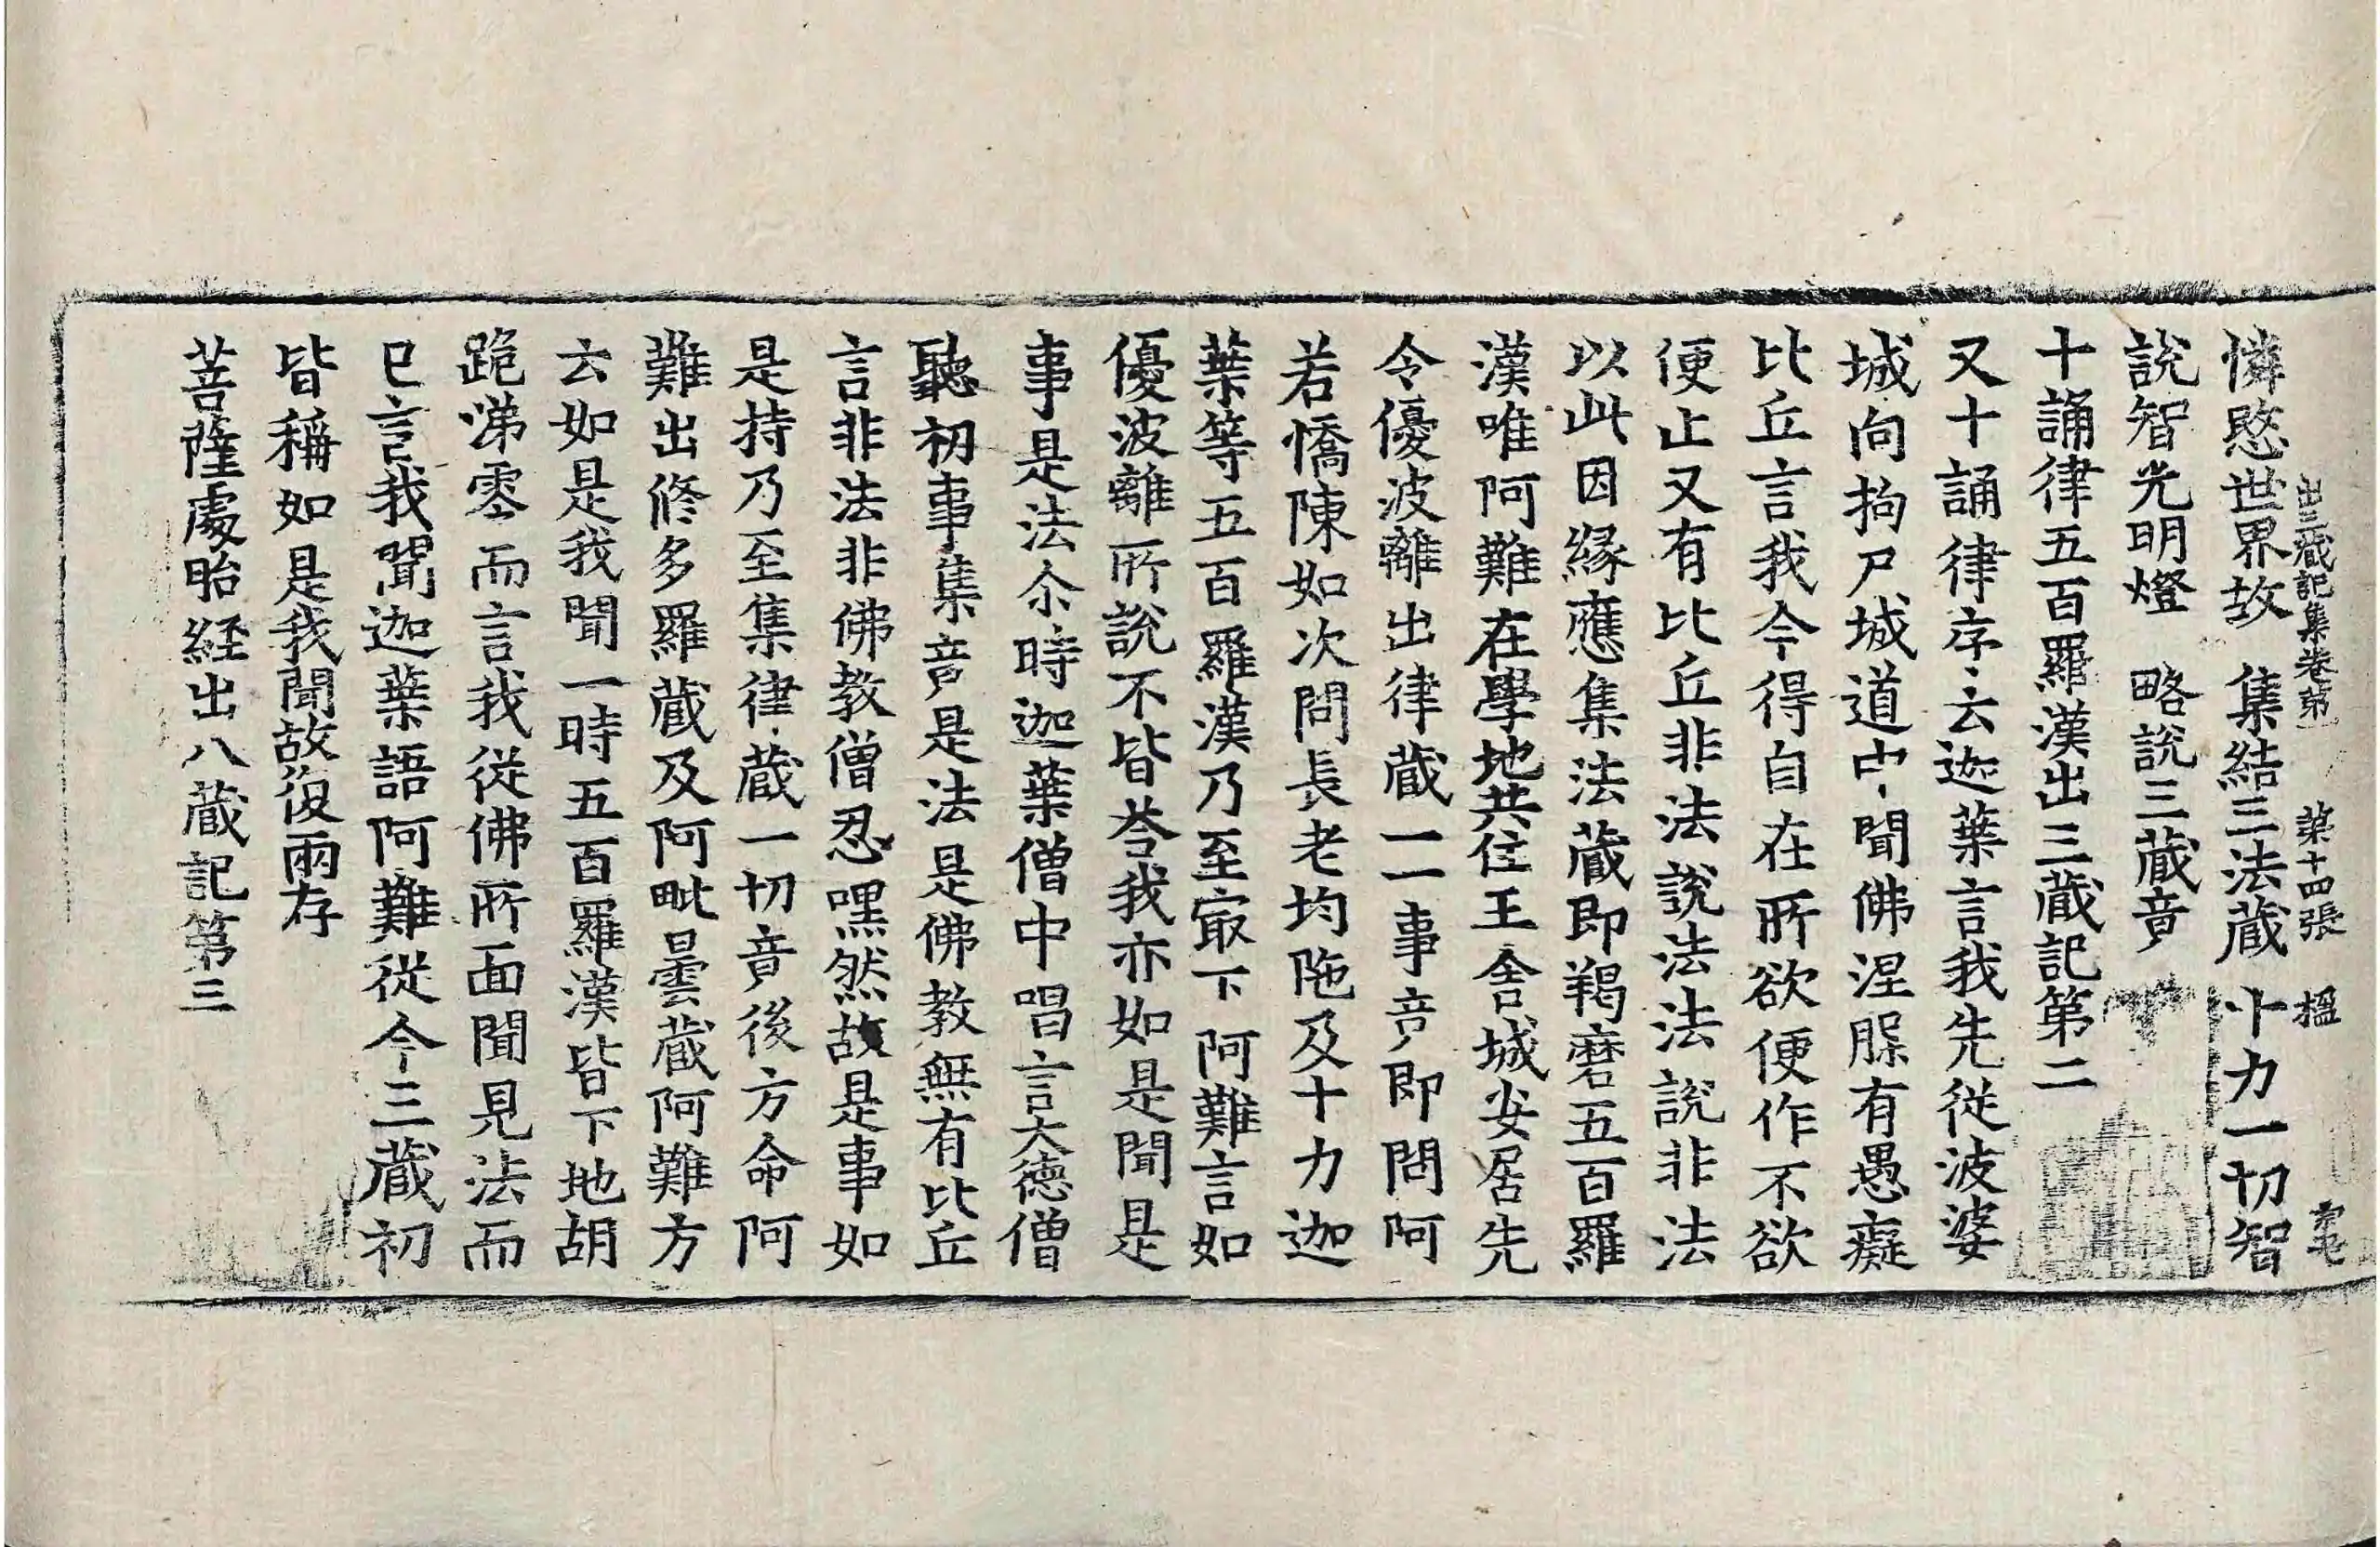 出三藏記集卷第一　第十四張　楹
憐愍世界故　集結三法藏　十力一切智
說智光明燈　略說三藏竟
十誦律五百羅漢出三藏記第二
又十誦律序云迦葉言我先從波婆
城向拘尸城道中聞佛涅槃有愚癡
比丘言我今得自在所欲便作不欲
便止又有比丘非法說法法說非法
以此因緣應集法藏即羯磨五百羅
漢唯阿難在學地共住王舍城安居先
令優波離出律藏一一事竟即問阿
若憍陳如次問長老均陁及十力迦
葉等五百羅漢乃至㝡下阿難言如
優波離所說不皆荅我亦如是聞是
事是法尒時迦葉僧中唱言大德僧
聽初事集竟是法是佛教無有比丘
言非法非佛教僧忍嘿然故是事如
是持乃至集律藏一切竟後方命阿
難出修多羅藏及阿毗曇藏阿難方
云如是我聞一時五百羅漢皆下地胡
跪涕零而言我從佛所面聞見法而
已言我聞迦葉語阿難從今三藏初
皆稱如是我聞故復兩存
菩薩處胎経出八藏記第三